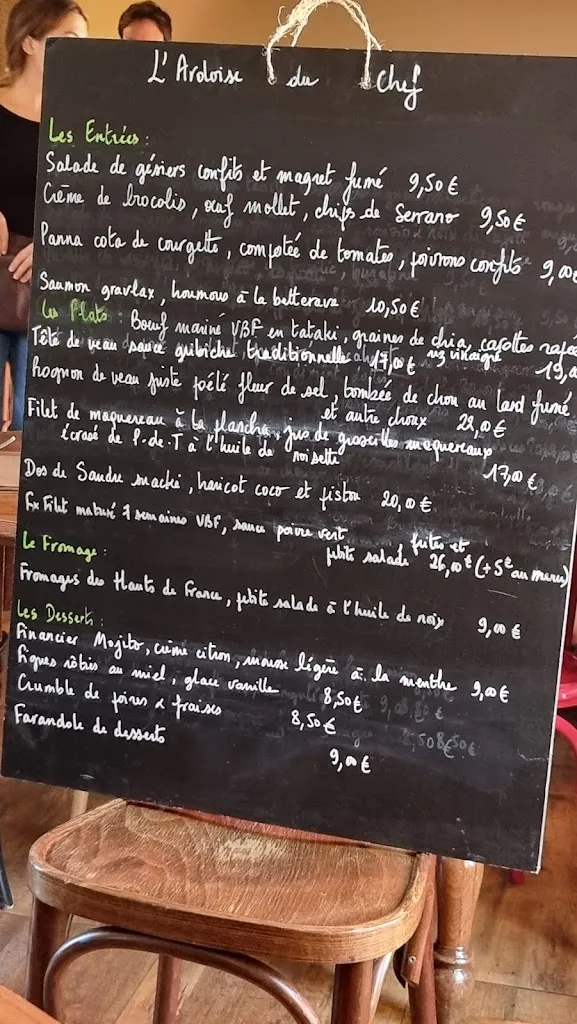 L'Ardoise du Chef
Les Entrées :
Salade de gésiers confits et magret fumé 9,50 €
Crème de brocolis, œuf mollet, chips de Serrano 9,50 €
Panna cota de courgette, compotée de tomates, poivrons confits 9,00€
Saumon gravlax, houmous à la betterave 10,50 €
Les Plats : Bœuf mariné VBF en tataki, graines de chia, carottes
riz vinaigré 19,
Tête de veau sauce gribiche traditionnelle 17,00 €
Rognon de veau juste poêlé fleur de sel, bombée de chou au lard fumé
et autre choux 22,00 €
Filet de maquereau à la plancha, jus de groseilles maquereaux
écrasé de P-de-T à l'huile de noisette 17,00 €
Dos de Sandre snacké, haricot coco et pistou 20,00 €
Fx Filet maturé 7 semaines VBF, sauce poivre vert, frites et
petite salade 26,00 € (+5€ au menu)
Le Fromage :
Fromages des Hauts de France, petite salade à l'huile de noix 9,00 €
Les Desserts :
Financier Mojito, crème citron, mousse légère à la menthe 9,00 €
Figues rôties au miel, glace vanille 8,50 €
Crumble de poires & fraises 8,50 €
Farandole de desserts 9,00 €